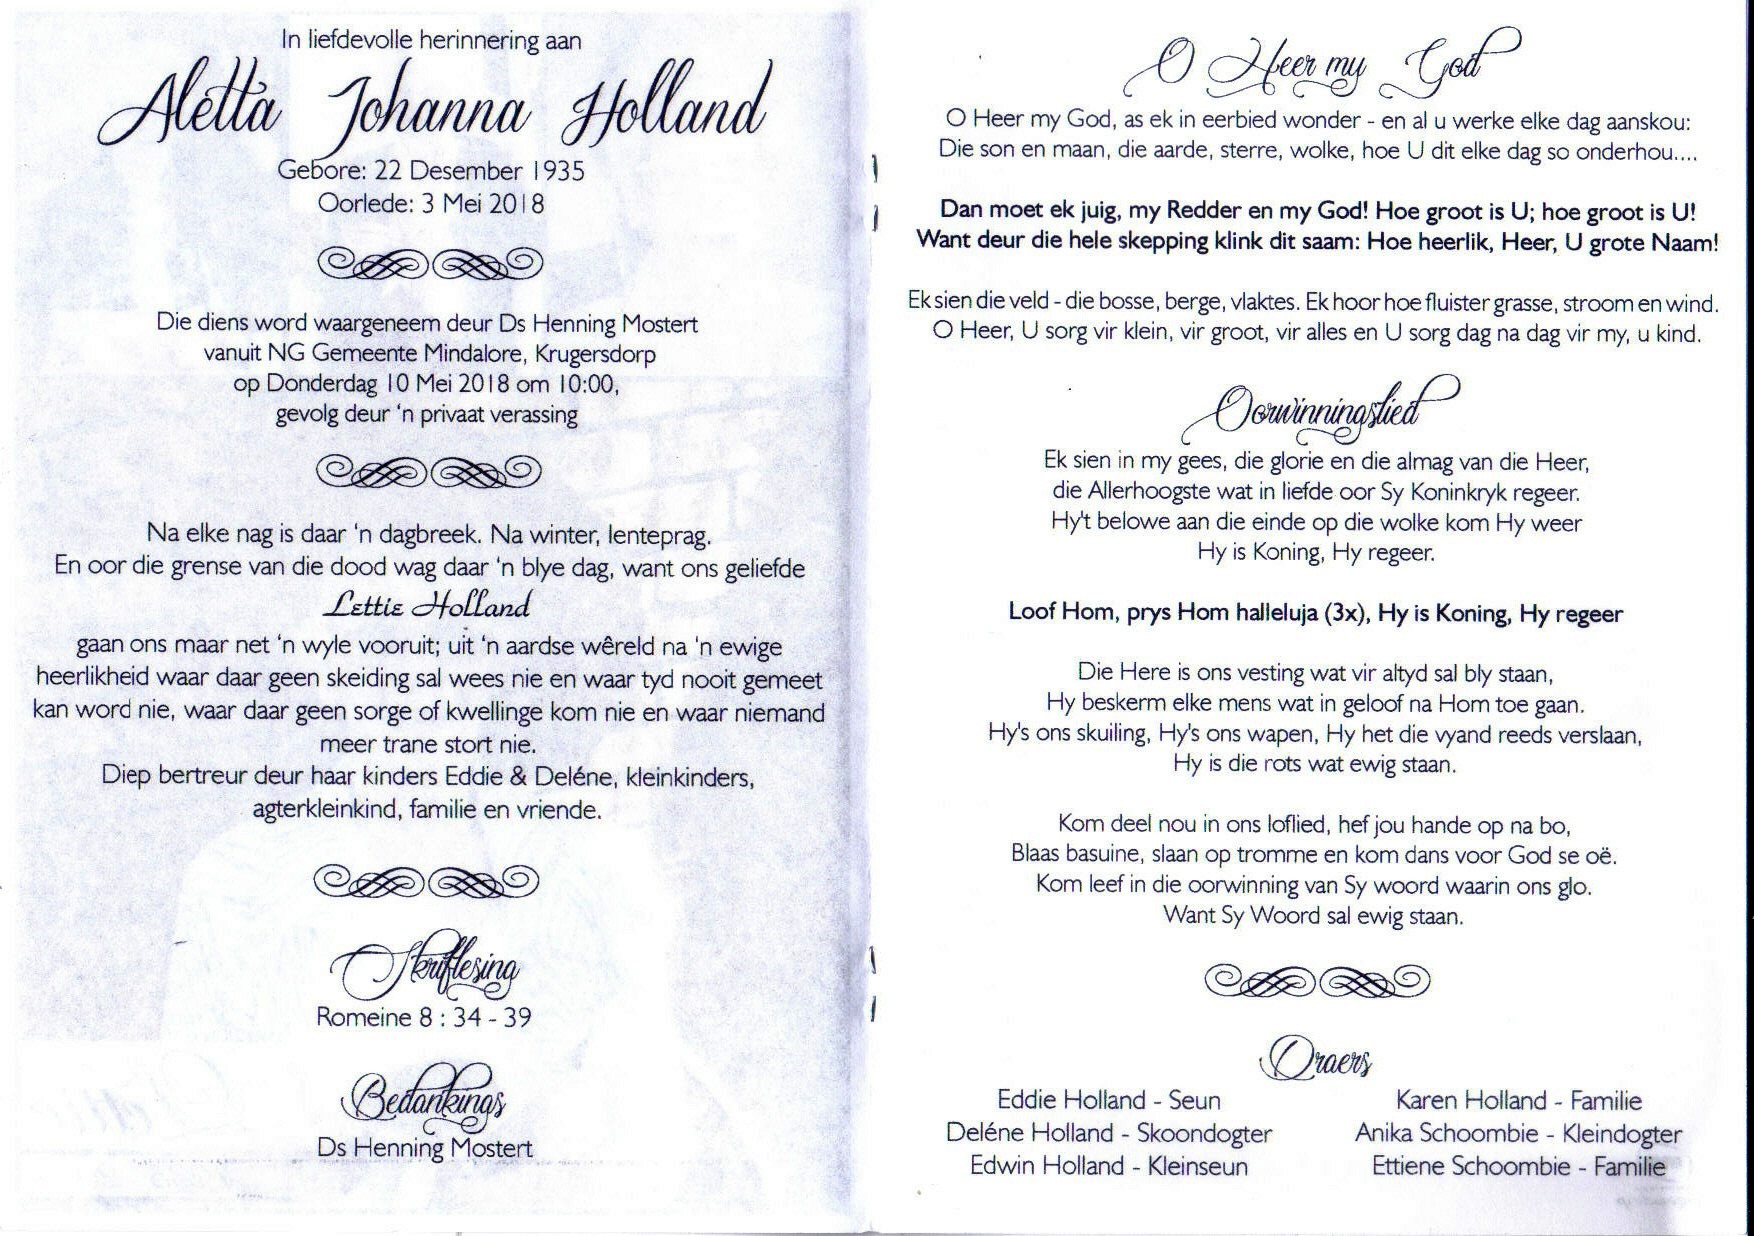 In liefdevolle herinnering aan
Aletta Johanna Holland
Gebore: 22 Desember 1935
Oorlede: 3 Mei 2018
Die diens word waargeneem deur Ds Henning Mostert
vanuit NG Gemeente Mindalore, Krugersdorp
op Donderdag 10 Mei 2018 om 10:00,
gevolg deur 'n privaat verassing
Na elke nag is daar 'n dagbreek. Na winter, lenteprag.
En oor die grense van die dood wag daar 'n blye dag, want ons geliefde
Lettie Holland
gaan ons maar net 'n wyle vooruit; uit 'n aardse wêreld na 'n ewige
heerlikheid waar daar geen skeiding sal wees nie en waar tyd nooit gemeet
kan word nie, waar daar geen sorge of kwellinge kom nie en waar niemand
meer trane stort nie.
Diep bertreur deur haar kinders Eddie & Deléne, kleinkinders,
agterkleinkind, familie en vriende.
Skriflesing
Romeine 8 : 34 - 39
Bedankings
Ds Henning Mostert
O Heer my God
O Heer my God, as ek in eerbied wonder - en al u werke elke dag aanskou:
Die son en maan, die aarde, sterre, wolke, hoe U dit elke dag so onderhou....
Dan moet ek juig, my Redder en my God! Hoe groot is U; hoe groot is U!
Want deur die hele skepping klink dit saam: Hoe heerlik, Heer, U grote Naam!
Ek sien die veld - die bosse, berge, vlaktes. Ek hoor hoe fluister grasse, stroom en wind.
O Heer, U sorg vir klein, vir groot, vir alles en U sorg dag na dag vir my, u kind.
Oorwinningslied
Ek sien in my gees, die glorie en die almag van die Heer,
die Allerhoogste wat in liefde oor Sy Koninkryk regeer.
Hy't belowe aan die einde op die wolke kom Hy weer
Hy is Koning, Hy regeer.
Loof Hom, prys Hom halleluja (3x), Hy is Koning, Hy regeer
Die Here is ons vesting wat vir altyd sal bly staan,
Hy beskerm elke mens wat in geloof na Hom toe gaan.
Hy's ons skuiling, Hy's ons wapen, Hy het die vyand reeds verslaan,
Hy is die rots wat ewig staan.
Kom deel nou in ons loflied, hef jou hande op na bo,
Blaas basuine, slaan op tromme en kom dans voor God se oë.
Kom leef in die oorwinning van Sy woord waarin ons glo.
Want Sy Woord sal ewig staan.
Draers
Eddie Holland - Seun
Deléne Holland - Skoondogter
Edwin Holland - Kleinseun
Karen Holland - Familie
Anika Schoombie - Kleindogter
Ettiene Schoombie - Familie